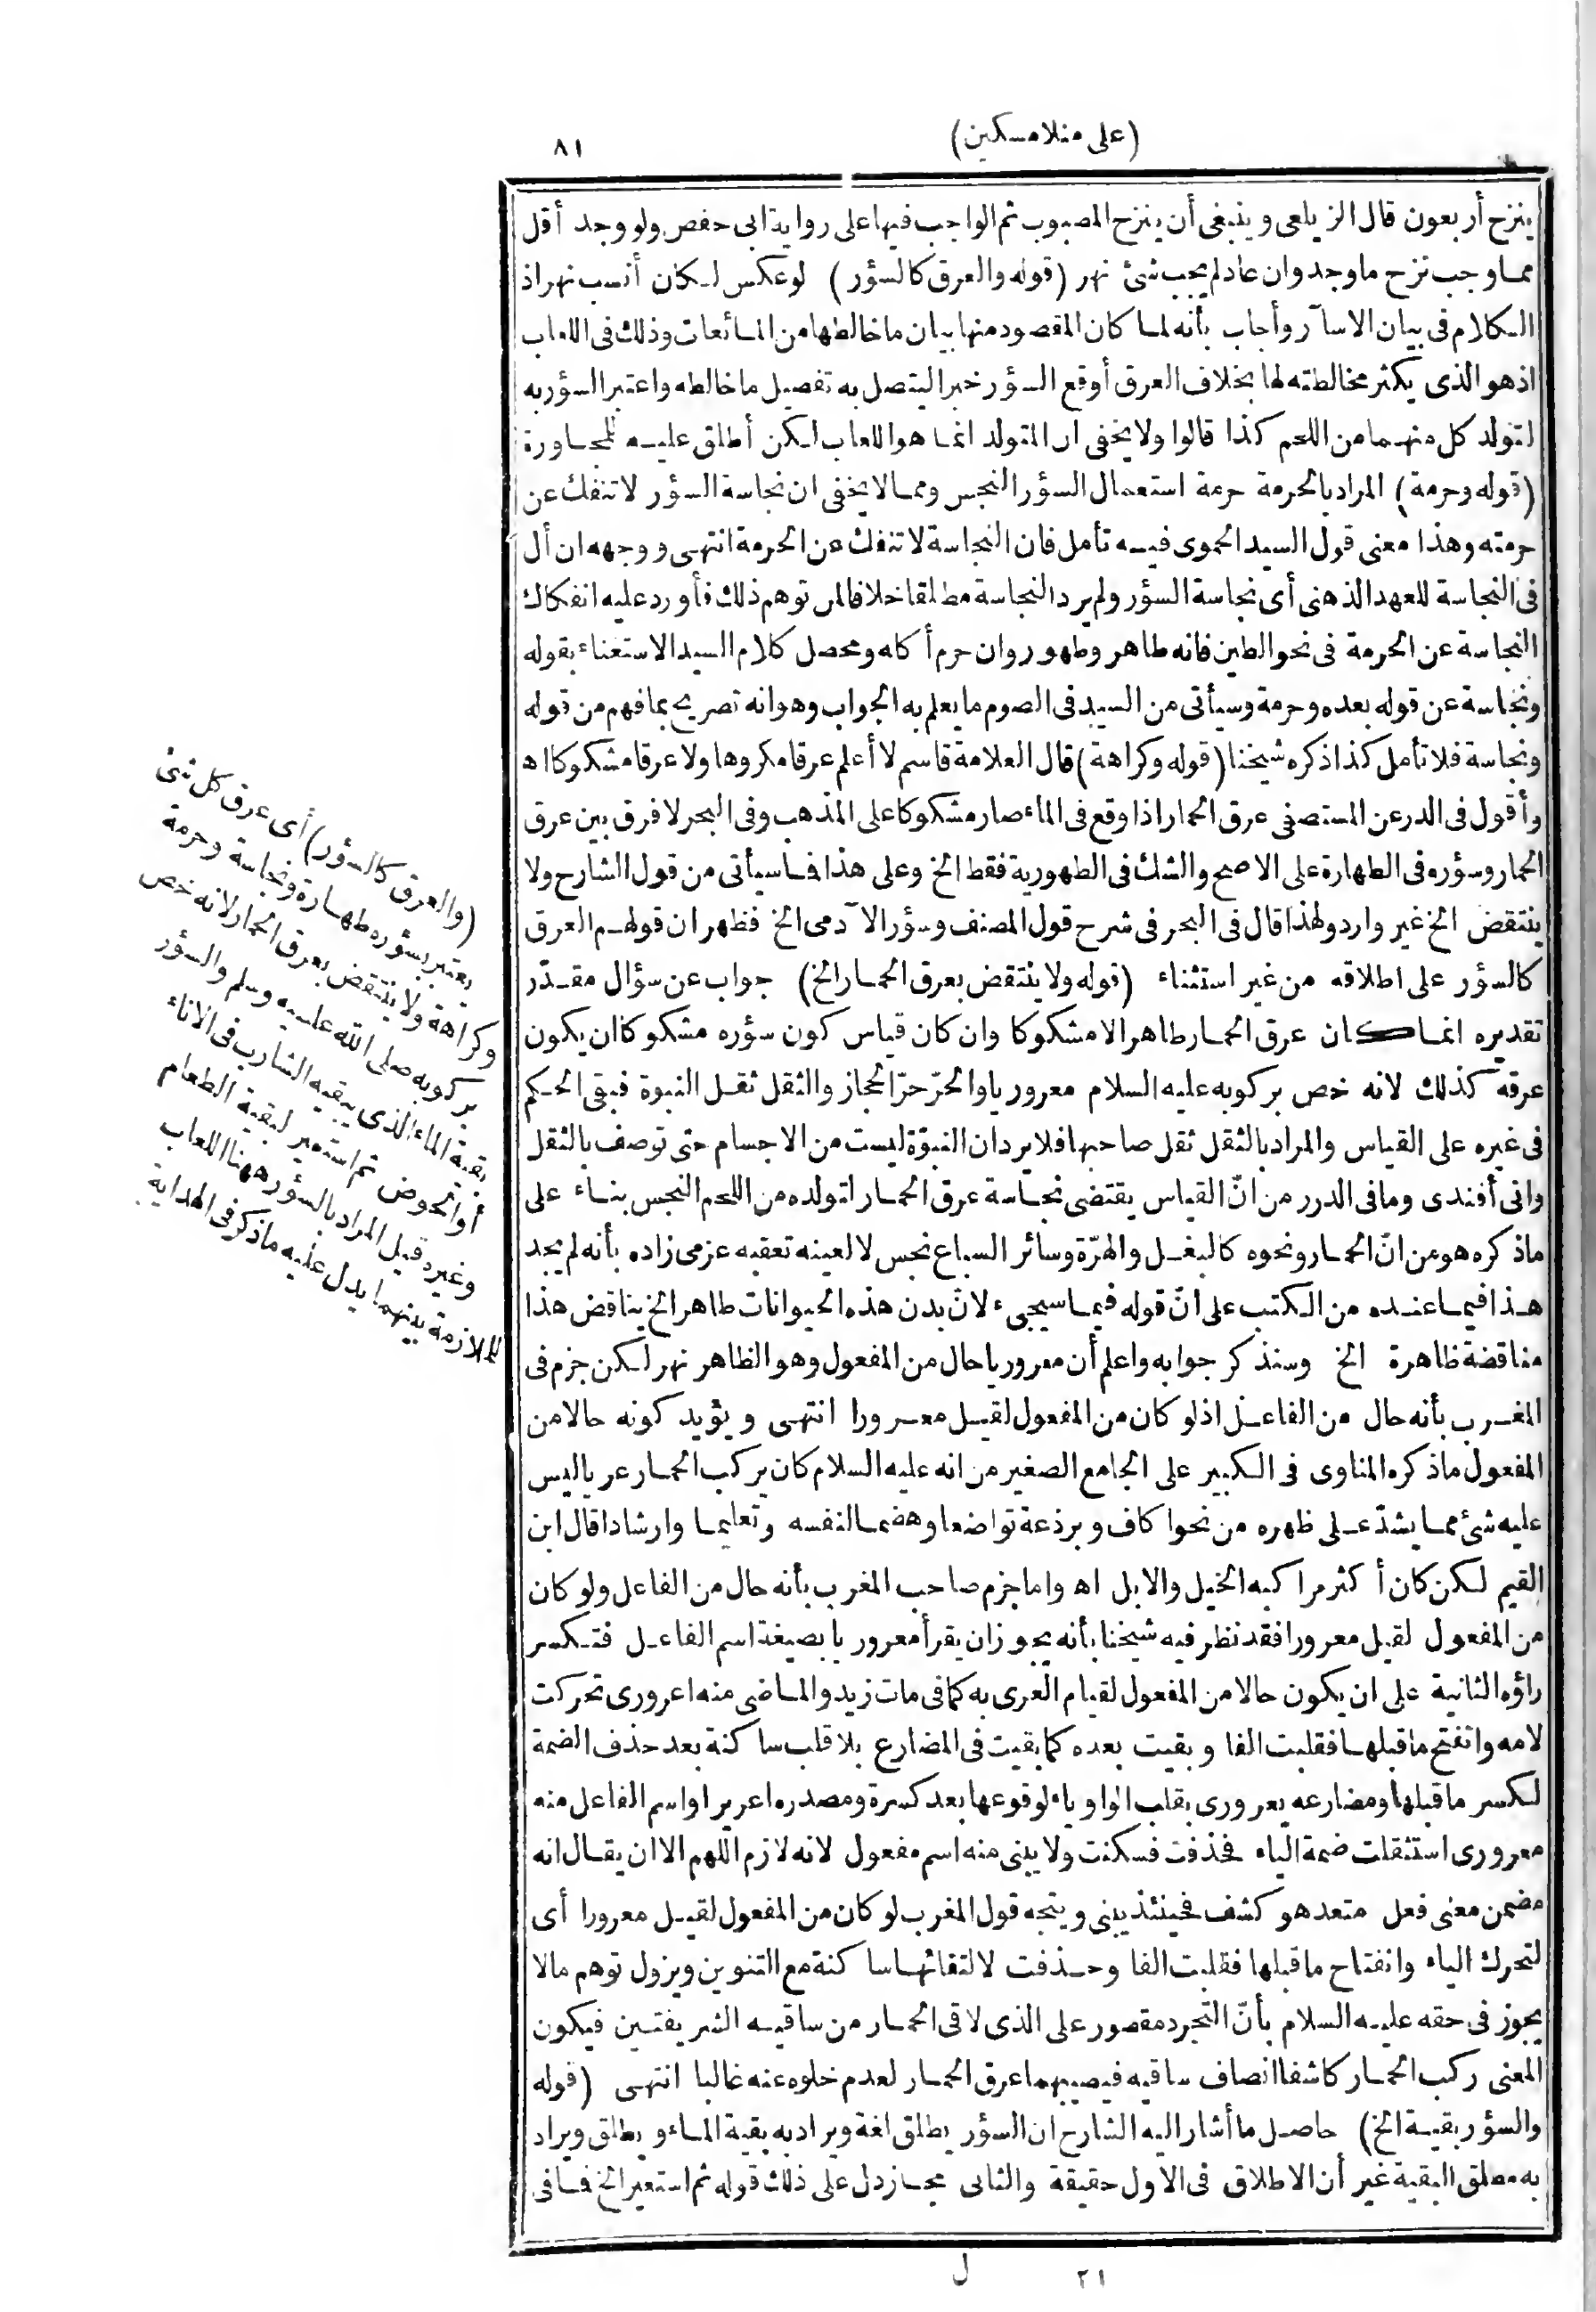 (على منلا مسكين)
٨١
ينزح أربعون قال الزيلعى وينبغى أن ينزح المصبوب ثم الواجب فيها على رواية ابى حفص ولو وجد أقل
مما وجب نزح ما وجد وان عاد لم يجب شئ نهر (قوله والعرق كالسؤر) لو عكس لكان أنسب نهر اذ
الكلام فى بيان الاسآر وأجاب بأنه لما كان المقصود منها بيان ما خالطها من المائعات وذلك فى اللعاب
اذ هو الذى يكثر مخالطته لها بخلاف العرق أوقع السؤر خبرا ليتصل به تفصيل ما خالطه واعتبر السؤر به
لتولد كل منهما من اللحم كذا قالوا ولا يخفى ان المتولد انما هو اللعاب لكن أطلق عليه للمجاورة
(قوله وحرمة) المراد بالحرمة حرمة استعمال السؤر النجس ومما لا يخفى ان نجاسة السؤر لا تنفك عن
حرمته وهذا معنى قول السيد الحموى فيه تأمل فان النجاسة لا تنفك عن الحرمة انتهى ووجهه ان أل
فى النجاسة للعهد الذهنى أى نجاسة السؤر ولم يرد النجاسة مطلقا خلافا لمن توهم ذلك فأورد عليه انفكاك
النجاسة عن الحرمة فى نحو الطين فانه طاهر وطهور وان حرم أكله ومحصل كلام السيد الاستغناء بقوله
ونجاسة عن قوله بعده وحرمة وسيأتى من السيد فى الصوم ما يعلم به الجواب وهو انه تصريح بما فهم من قوله
ونجاسة فلا تأمل كذا ذكره شيخنا (قوله وكراهة) قال العلامة قاسم لا أعلم عرقا مكروها ولا عرقا مشكوكا اه
وأقول فى الدر عن المستصفى عرق الحمار اذا وقع فى الماء صار مشكوكا على المذهب وفى البحر لا فرق بين عرق
الحمار وسؤره فى الطهارة على الاصح والشك فى الطهورية فقط الخ وعلى هذا فما سيأتى من قول الشارح ولا
ينتقض الخ غير وارد ولهذا قال فى البحر فى شرح قول المصنف وسؤر الآدمى الخ فظهر ان قولهم العرق
كالسؤر على اطلاقه من غير استثناء (قوله ولا ينتقض بعرق الحمار الخ) جواب عن سؤال مقدّر
تقديره انما كان عرق الحمار طاهرا لا مشكوكا وان كان قياس كون سؤره مشكوكا ان يكون
عرقه كذلك لانه خص بركوبه عليه السلام معروريا والحرّ حرّ الحجاز والثقل ثقل النبوة فبقى الحكم
فى غيره على القياس والمراد بالثقل ثقل صاحبها فلا يرد ان النبوّة ليست من الاجسام حتى توصف بالثقل
وانى أفندى وما فى الدرر من انّ القياس يقتضى نجاسة عرق الحمار لتولده من اللحم النجس بناء على
ما ذكره هو من انّ الحمار ونحوه كالبغل والهرّة وسائر السباع نجس لا لعينه تعقبه عزمى زاده بأنه لم يجد
هذا فيما عنده من الكتب على انّ قوله فيما سيجىء لانّ بدن هذه الحيوانات طاهر الخ يناقض هذا
مناقضة ظاهرة الخ وسنذكر جوابه واعلم أن معروريا حال من المفعول وهو الظاهر نهر لكن جزم فى
المغرب بأنه حال من الفاعل اذ لو كان من المفعول لقيل معرورا انتهى ويؤيد كونه حالا من
المفعول ما ذكره المناوى فى الكبير على الجامع الصغير من انه عليه السلام كان يركب الحمار عريا ليس
عليه شئ مما يشدّ على ظهره من نحو اكاف وبرذعة تواضعا وهضما لنفسه وتعليما وارشادا قال ابن
القيم لكن كان أكثر مراكبه الخيل والابل اه واما جزم صاحب المغرب بأنه حال من الفاعل ولو كان
من المفعول لقيل معرورا فقد نظر فيه شيخنا بأنه يجوز ان يقرأ معروريا بصيغة اسم الفاعل فتكسر
راؤه الثانية على ان يكون حالا من المفعول لقيام العرى به كما فى مات زيد والماضى منه اعرورى تحركت
لامه وانفتح ما قبلها فقلبت الفا وبقيت بعده كما بقيت فى المضارع بلا قلب ساكنة بعد حذف الضمة
لكسر ما قبلها ومضارعه يعرورى بقلب الواو ياء لوقوعها بعد كسرة ومصدره اعريرا واسم الفاعل منه
معرورى استثقلت ضمة الياء فحذفت فسكنت ولا يبنى منه اسم مفعول لانه لازم اللهم الا ان يقال انه
مضمن معنى فعل متعد هو كشف فحينئذ يبنى ويتجه قول المغرب لو كان من المفعول لقيل معرورا أى
لتحرك الياء وانفتاح ما قبلها فقلبت الفا وحذفت لالتقائها ساكنة مع التنوين ويزول توهم ما لا
يجوز فى حقه عليه السلام بأنّ التجرد مقصور على الذى لاقى الحمار من ساقيه الشريفتين فيكون
المعنى ركب الحمار كاشفا انصاف ساقيه فيصيبهما عرق الحمار لعدم خلوه عنه غالبا انتهى (قوله
والسؤر بقية الخ) حاصل ما أشار اليه الشارح ان السؤر يطلق لغة ويراد به بقية الماء ويطلق ويراد
به مطلق البقية غير أن الاطلاق فى الاول حقيقة والثانى مجاز دل على ذلك قوله ثم استعير الخ فما فى
(والعرق كالسؤر) أى عرق كل شئ
يعتبر بسؤره طهارة ونجاسة وحرمة
وكراهة ولا ينتقض بعرق الحمار لانه خص
بركوبه صلى الله عليه وسلم والسؤر
بقية الماء الذى يبقيه الشارب فى الاناء
أو الحوض ثم استعير لبقية الطعام
وغيره قيل المراد بالسؤر ههنا اللعاب
للملازمة بينهما يدل عليه ما ذكر فى الهداية
٢١ ل